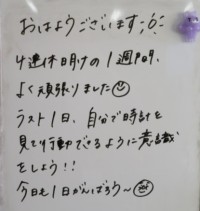 おはようございます
4連休明けの1週間、
よく頑張りました
ラスト1日、自分で時計を
見て行動できるように意識
をしよう!!
今日も1日がんばろう〜